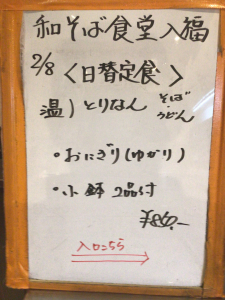 和そば食堂入福
2/8 <日替定食>
温) とりなん そば・うどん
・おにぎり(ゆかり)
・小鉢 2品付
¥860.-
入口こちら